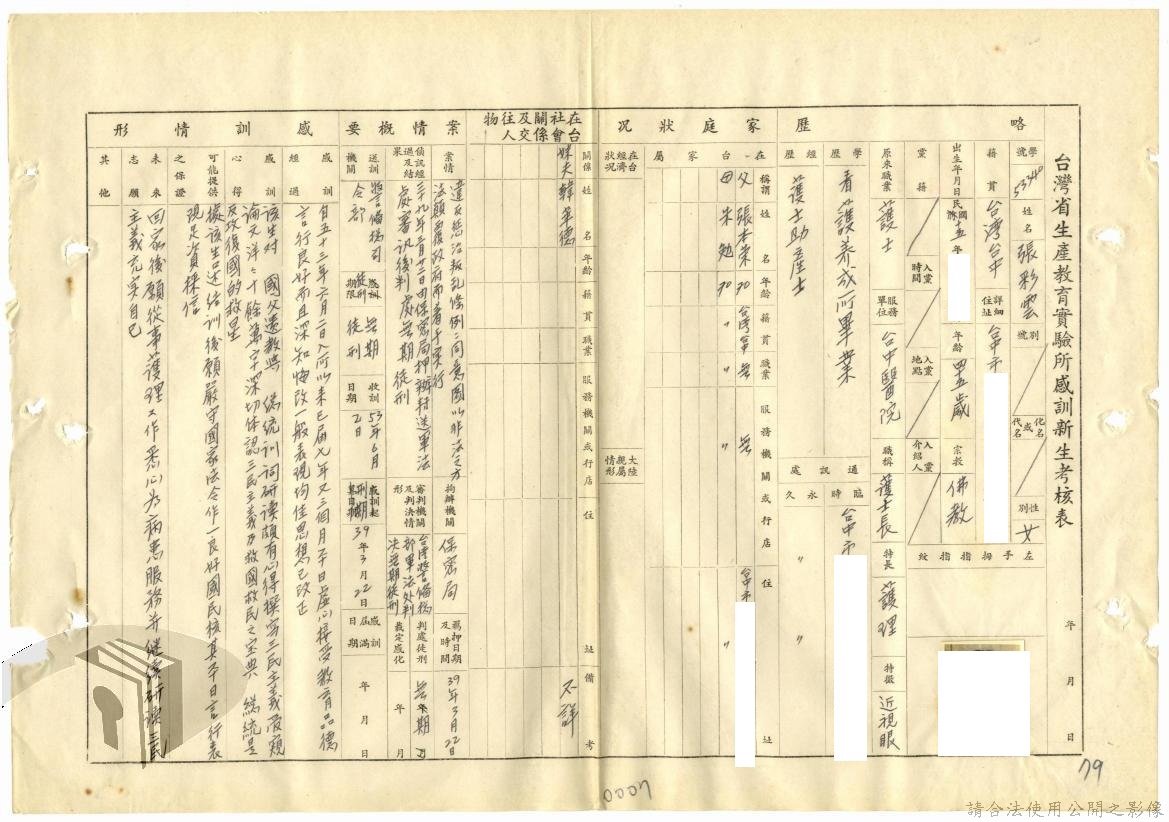 台灣省生產教育實驗所感訓新生考核表
年 月 日
學號 5340 姓名 張彩雲 別號 化名或代名 性別 女
籍貫 台灣台中 詳細住址 台中市
左手拇指指紋
出生年月日 民國前 十五年 年齡 四五歲 宗教 佛教
黨籍 入黨時間 入黨地點 入黨介紹人
原來職業 護士 服務單位 台中醫院 職稱 護士長 特長 護理 特徵 近視眼
略歷
學歷 看護養成所畢業
經歷 護士助產士
通訊處 臨時 台中市
永久 〃 〃
家庭狀況
在台家屬
稱謂 姓名 年齡 籍貫 職業 服務機關或行店 住址
父 張杏榮 70 台灣台中 無 無 台中市
母 朱勉 70 〃 〃 〃 〃
在台經濟狀況
大陸親屬情形
在台社會關係及交往人物
關係 姓名 年齡 籍貫 職業 服務機關或行店 住址 備考
妹夫 韓革德 不詳
案情概要
案情 違反懲治叛乱條例二同意圖以非法之方
法顛覆政府而着手實行
拘辦機關 保密局 羈押日期及時間 39年3月22日
偵訊經過及結果 三十九年三月廿二日由保密局押辦轉送軍法
處審訊後判處無期徒刑
審判機關及判決情形 台灣警備總部軍法处判決無期徒刑
判處徒刑裁定感化 無期 年 月
送訓機關 警備總司令部 感訓徒刑期限 無期徒刑 收訓日期 53年6月2日
感訓刑期起算日期 39年3月22日 感訓屆滿日期 年 月 日
感訓情形
感訓經過 自五十三年六月二日入所以来已屆七年又三個月平日虛心接受教育品德
言行良好而且深知悔改一般表現均佳思想已改正
感訓心得 該生对 國父遺教與 總統訓詞研读頗有心得撰寫三民主義受題
論文洋洋十餘萬字深切体認三民主義乃救國救民之宝典 總統是
反攻復國的救星
可能提供之保證 據該生述結訓後願嚴守國家法令作一良好國民核其平日言行表
現足資採信
未來志願 回家後願从事護理工作悉心为病患服務并繼續研读三民
主義充實自己
其他
79
4000
請合法使用公開之影像